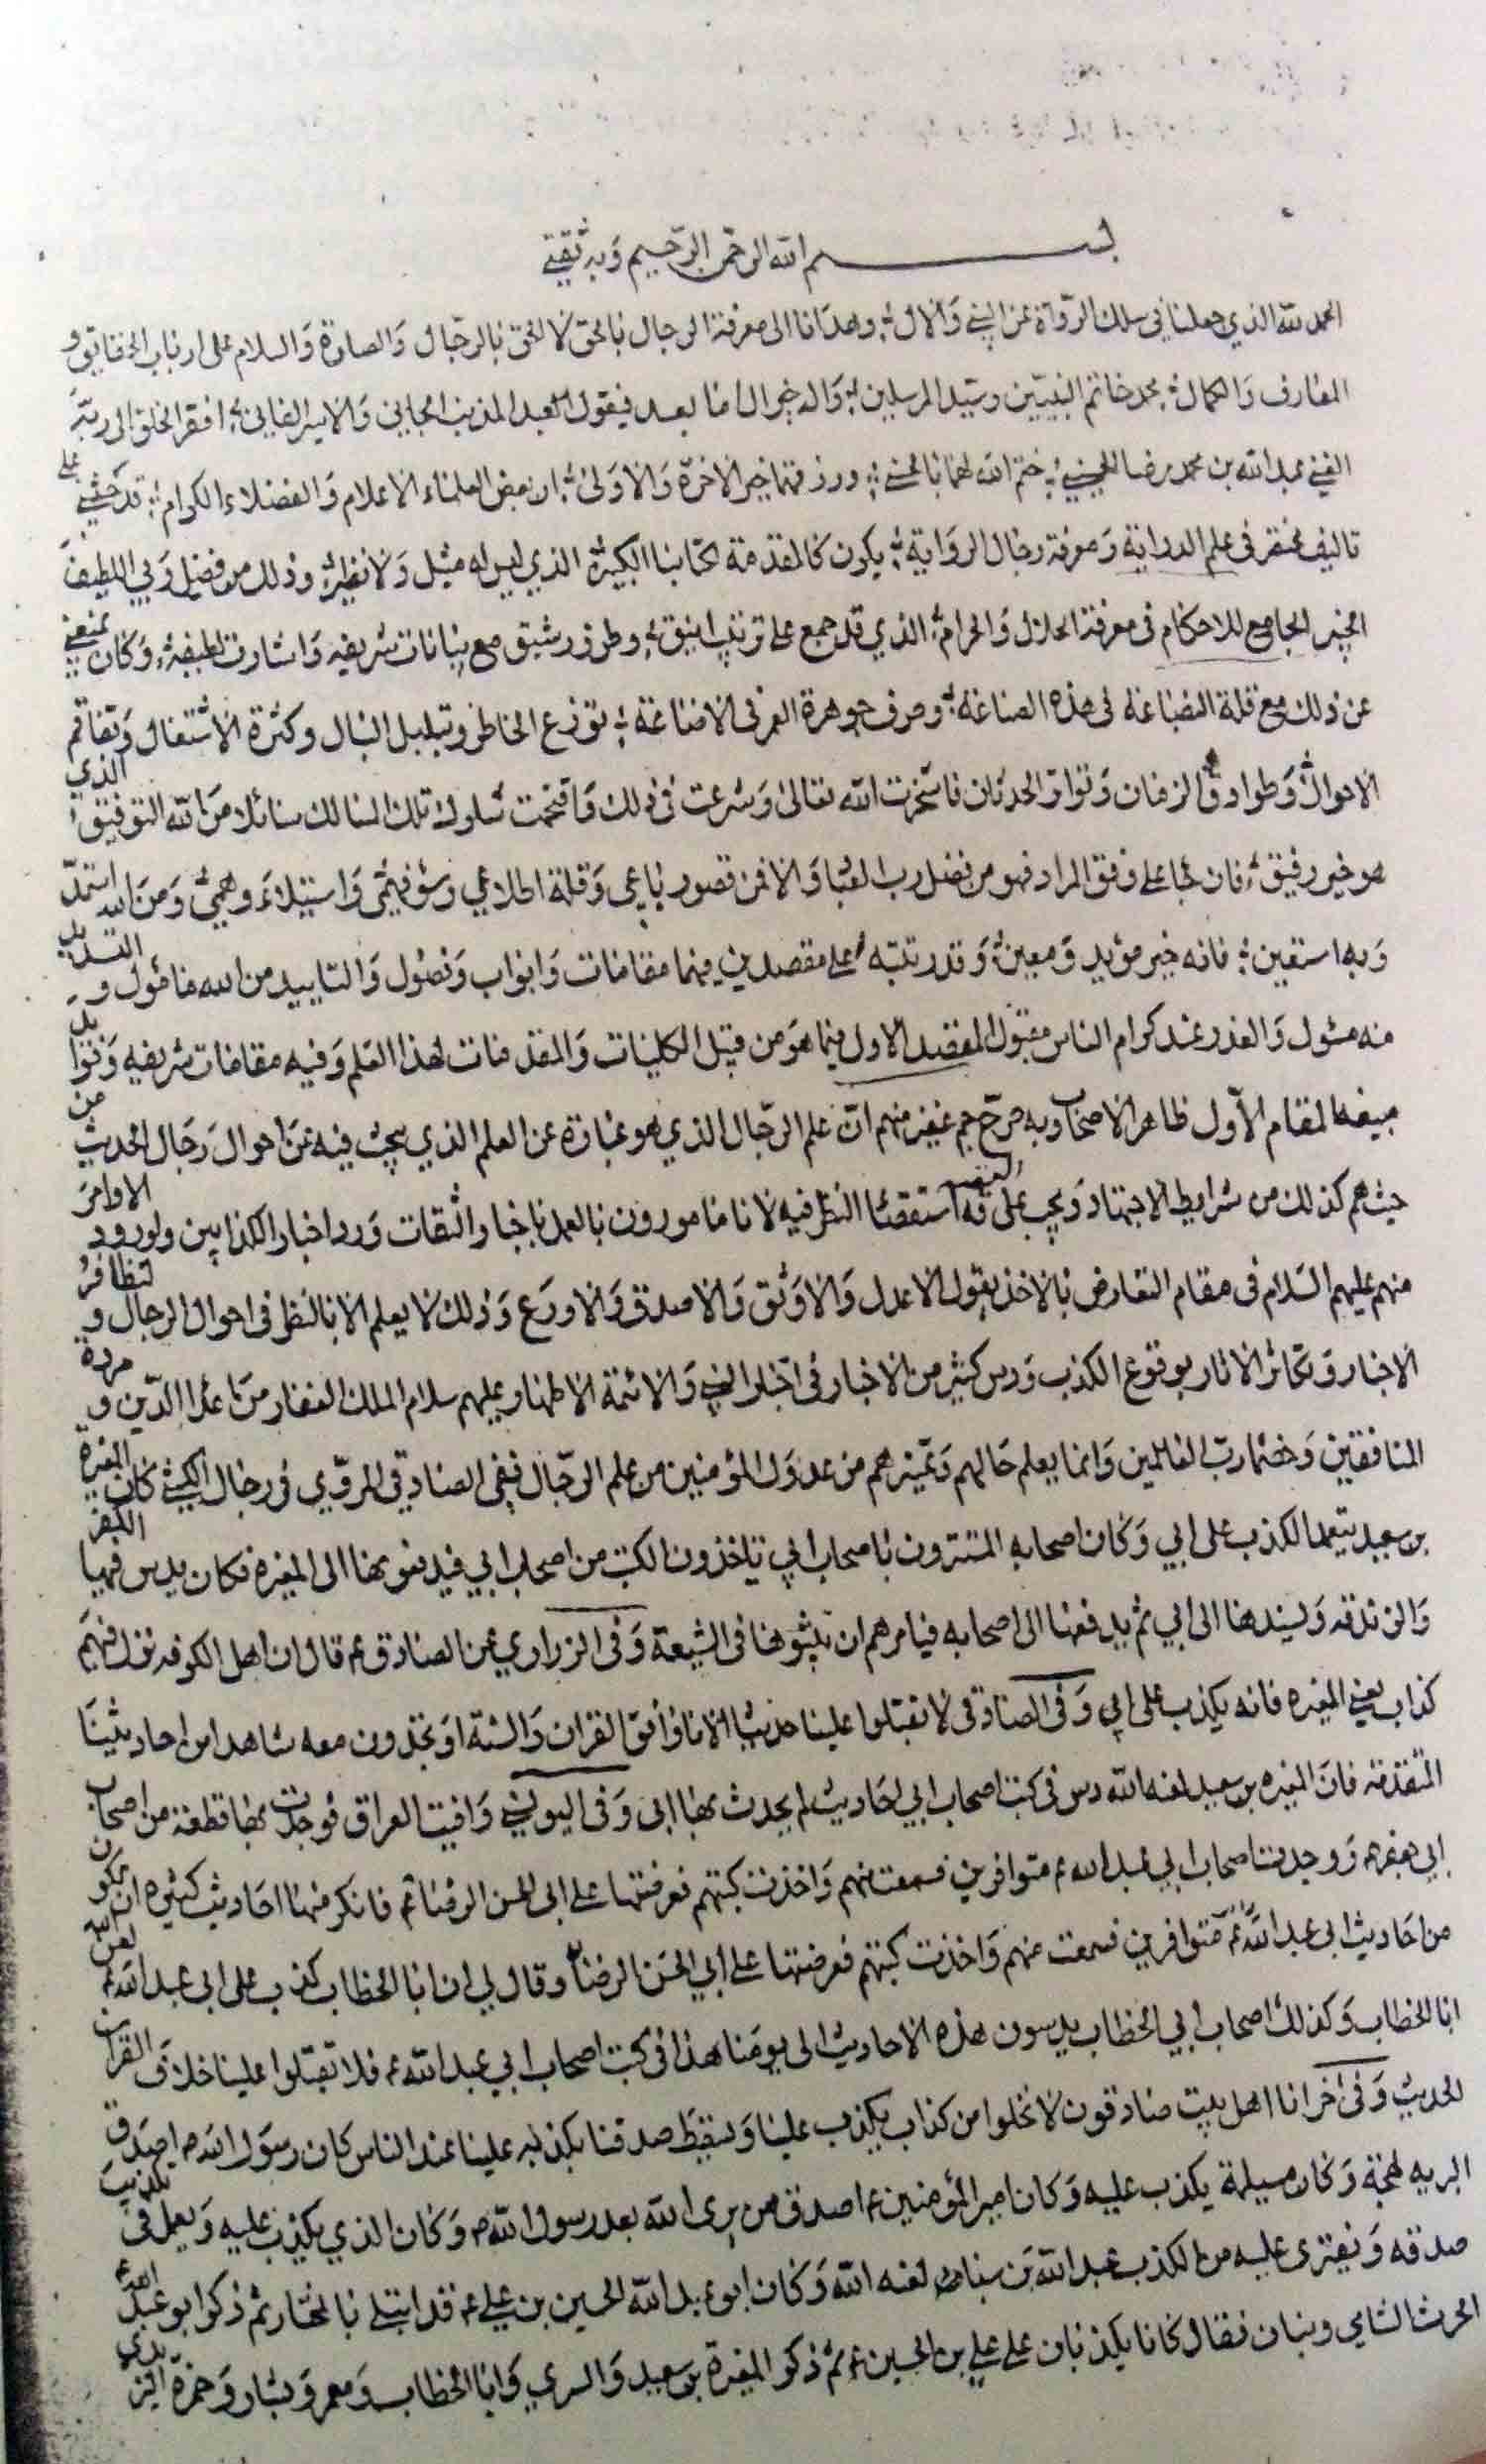 بسم الله الرحمن الرحيم وبه ثقتي
الحمد لله الذي جعلنا في سلك الرواة عن النبي والال وهدانا الى معرفة الرجال بالحق لا الحق بالرجال والصلوة والسلام على ارباب الحقايق و
المعارف والكمال محمد خاتم النبيين وسيد المرسلين واله خير ال اما بعد فيقول العبد المذنب الجاني والاسير الفاني افقر الخلق الى ربه
الغني عبد الله بن محمد رضا الحسيني ختم الله لهما بالحسنى ورزقهما خير الاخرة والاولى ان بعض العلماء الاعلام والفضلاء الكرام قد حثني على
تاليف مختصر في علم الدراية ومعرفة رجال الرواية يكون كالمقدمة لكتابنا الكبير الذي ليس له مثيل ولا نظير وذلك من فضل ربي اللطيف
الخبير الجامع للاحكام في معرفة الحلال والحرام الذي قد جمع على ترتيب انيق وطرز رشيق مع بيانات شريفه واشارت لطيفة وكان يمنعني
عن ذلك مع قلة البضاعة في هذه الصناعة وصرف جوهرة العمر في الاضاعة توزع الخاطر وتبلبل البال وكثرة الاشتغال وتفاقم
الاحوال وطوارق الزمان وتواتر الحدثان فاستخرت الله تعالى وشرعت في ذلك واقتحمت سلوك تلك المسالك سائلا من الله التوفيق الذي
هو خير رفيق فان جاء على وفق المراد فهو من فضل رب العباد والا فمن قصور باعي وقلة اطلاعي وسؤ فهمي واستيلاء وهمي ومن الله استمد
وبه استعين فانه خير مؤيد ومعين وقد رتبته على مقصدين فيهما مقامات وابواب وفصول والتاييد من الله مامول و التسديد
منه مسئول والعذر عند كرام الناس مقبول المقصد الاول فيما هو من قبيل الكليات والمقدمات لهذا العلم وفيه مقامات شريفه وفوائد
منيفه المقام الاول ظاهر الاصحاب وبه صرح جم غفير منهم ان علم الرجال الذي هو عبارة عن العلم الذي يبحث فيه عن احوال رجال الحديث من
حيث هم كذلك من شرايط الاجتهاد ويجب على الفقيه استقصاء النظر فيه لاننا مامورون بالعمل باخبار الثقات ورد اخبار الكذابين ولورود الاوامر
منهم عليهم السلام في مقام التعارض بالاخذ بقول الاعدل والاوثق والاصدق والاورع وذلك لا يعلم الا بالنظر في احوال الرجال و لتظافر
الاخبار وتكاثر الاثار بوقوع الكذب ودس كثير من الاخبار في اخبار النبي والائمة الاطهار عليهم سلام الملك الغفار من اعداء الدين و مردة
المنافقين وخصماء رب العالمين وانما يعلم حالهم وتميزهم من عدول المؤمنين من علم الرجال ففي الصادقي المروي في رجال الكشي كان المغيرة
بن سعيد يتعمد الكذب على ابي وكان اصحابه المستترون باصحاب ابي ياخذون الكتب من اصحاب ابي فيدفعونها الى المغيره فكان يدس فيها الكفر
والزندقه ويسندها الى ابي ثم يدفعها الى اصحابه فيامرهم ان يبثوها في الشيعة وفي الزراري عن الصادق ع قال ان اهل الكوفه نزل فيهم
كذاب يعني المغيره فانه يكذب على ابي وفي الصادقي لا تقبلوا علينا حديثا الا ما وافق القران والسنة او تجدون معه شاهدا من احاديثنا
المتقدمة فان المغيره بن سعيد لعنه الله دس في كتب اصحاب ابي احاديث لم يحدث بها ابي وفي اليونسي وافيت العراق فوجدت بها قطعة من اصحاب
ابي جعفر ع ووجدت اصحاب ابي عبد الله ع متوافرين فسمعت منهم واخذت كتبهم فعرضتها على ابي الحسن الرضا ع فانكر منها احاديث كثيره ان تكون
من احاديث ابي عبد الله ع متوافرين فسمعت منهم واخذت كتبهم فعرضتها على ابي الحسن الرضا وقال لي ان ابا الخطاب كذب على ابي عبد الله ع لعن الله
ابا الخطاب وكذلك اصحاب ابي الخطاب يدسون هذه الاحاديث الى يومنا هذا في كتب اصحاب ابي عبد الله ع فلا تقبلوا علينا خلاف القران
الحديث وفي اخر انا اهل بيت صادقون لا نخلوا من كذاب يكذب علينا ويسقط صدقنا بكذبه علينا عند الناس كان رسول الله ص اصدق
البريه لهجة وكان مسيلمة يكذب عليه وكان امير المؤمنين ع اصدق من برى الله بعد رسول الله ص وكان الذي يكذب عليه ويعمل في تكذيب
صدقه ويفتري عليه من الكذب عبد الله بن سبا لعنه الله وكان ابو عبد الله الحسين بن علي ع قد ابتلي بالمختار ثم ذكر ابو عبد الله ع
الحرث الشامي وبنان فقال كانا يكذبان على علي بن الحسين ع ثم ذكر المغيرة بن سعيد والسري وابا الخطاب ومعمر وبشار وحمزة اليزيدي